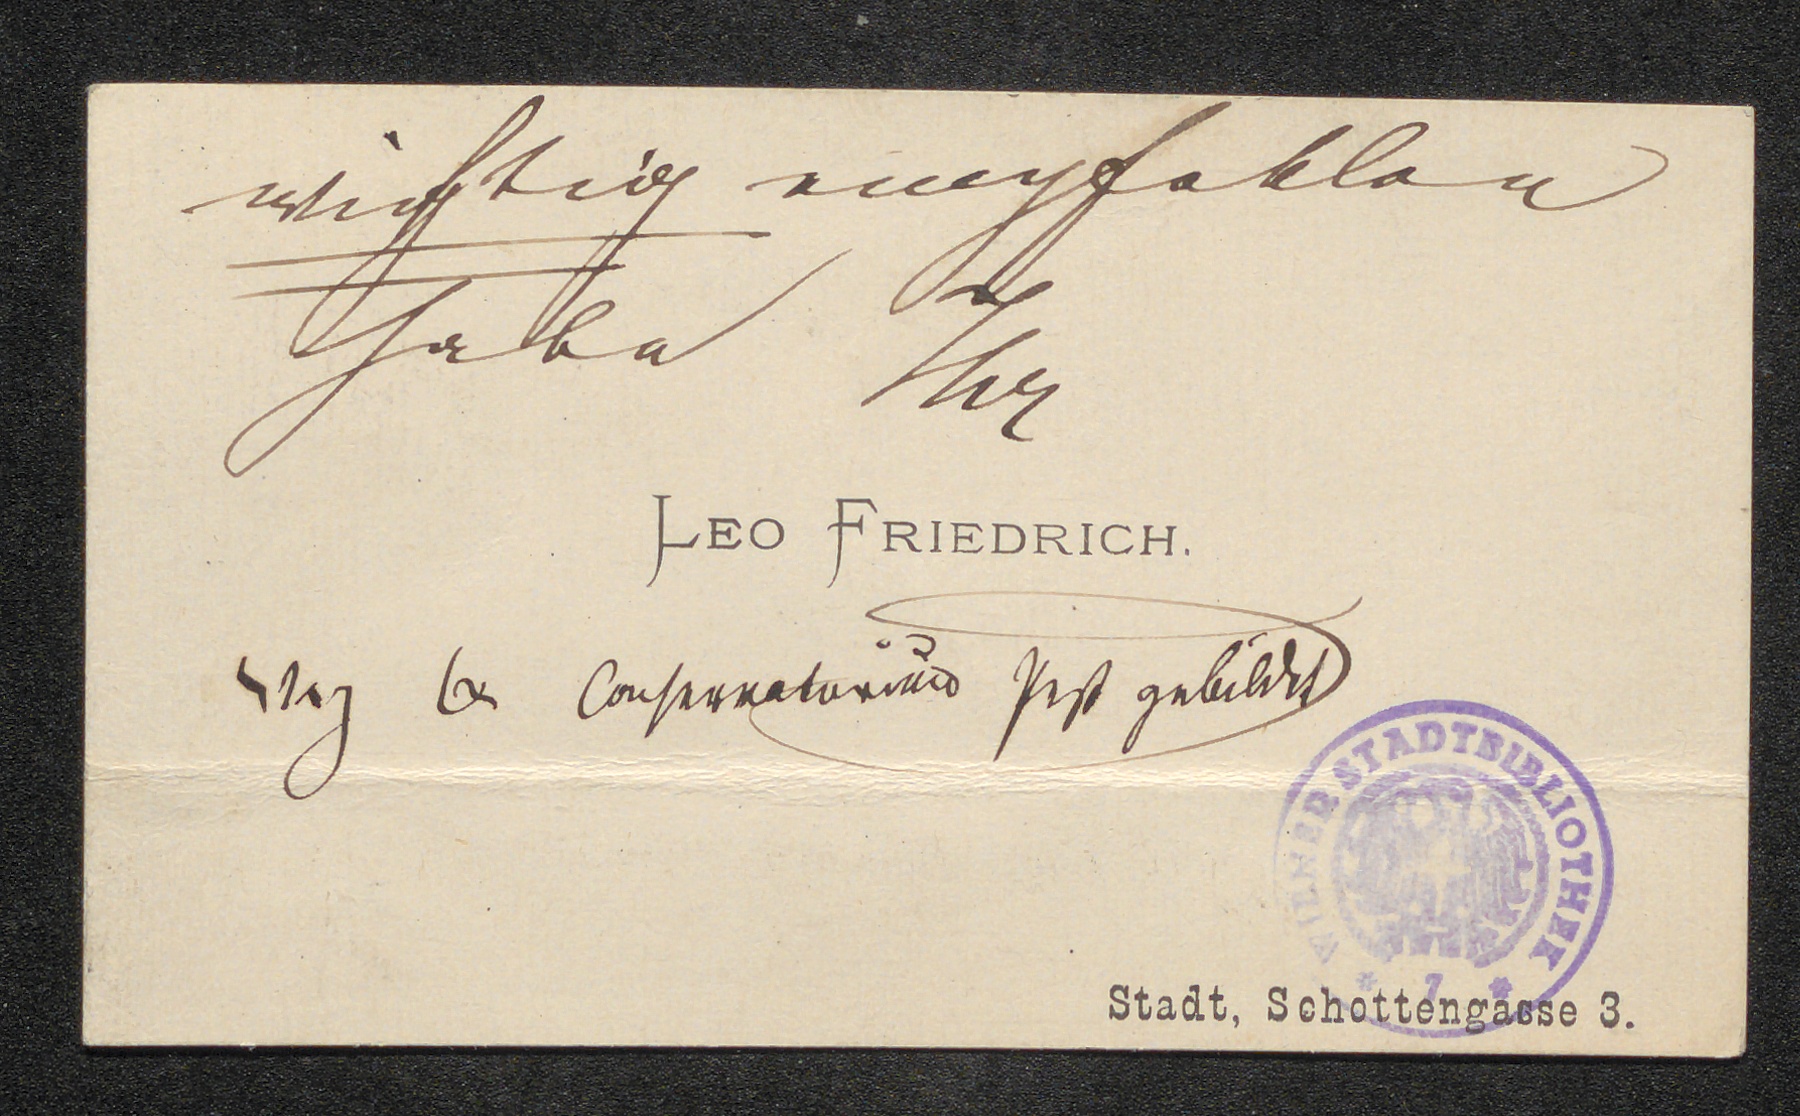 wichtig empfohlen
habe Ihr
LEO FRIEDRICH.
Conservatorium Pest gebildet
WIENER STADTBIBLIOTHEK
* 7 *
Stadt, Schottengasse 3.